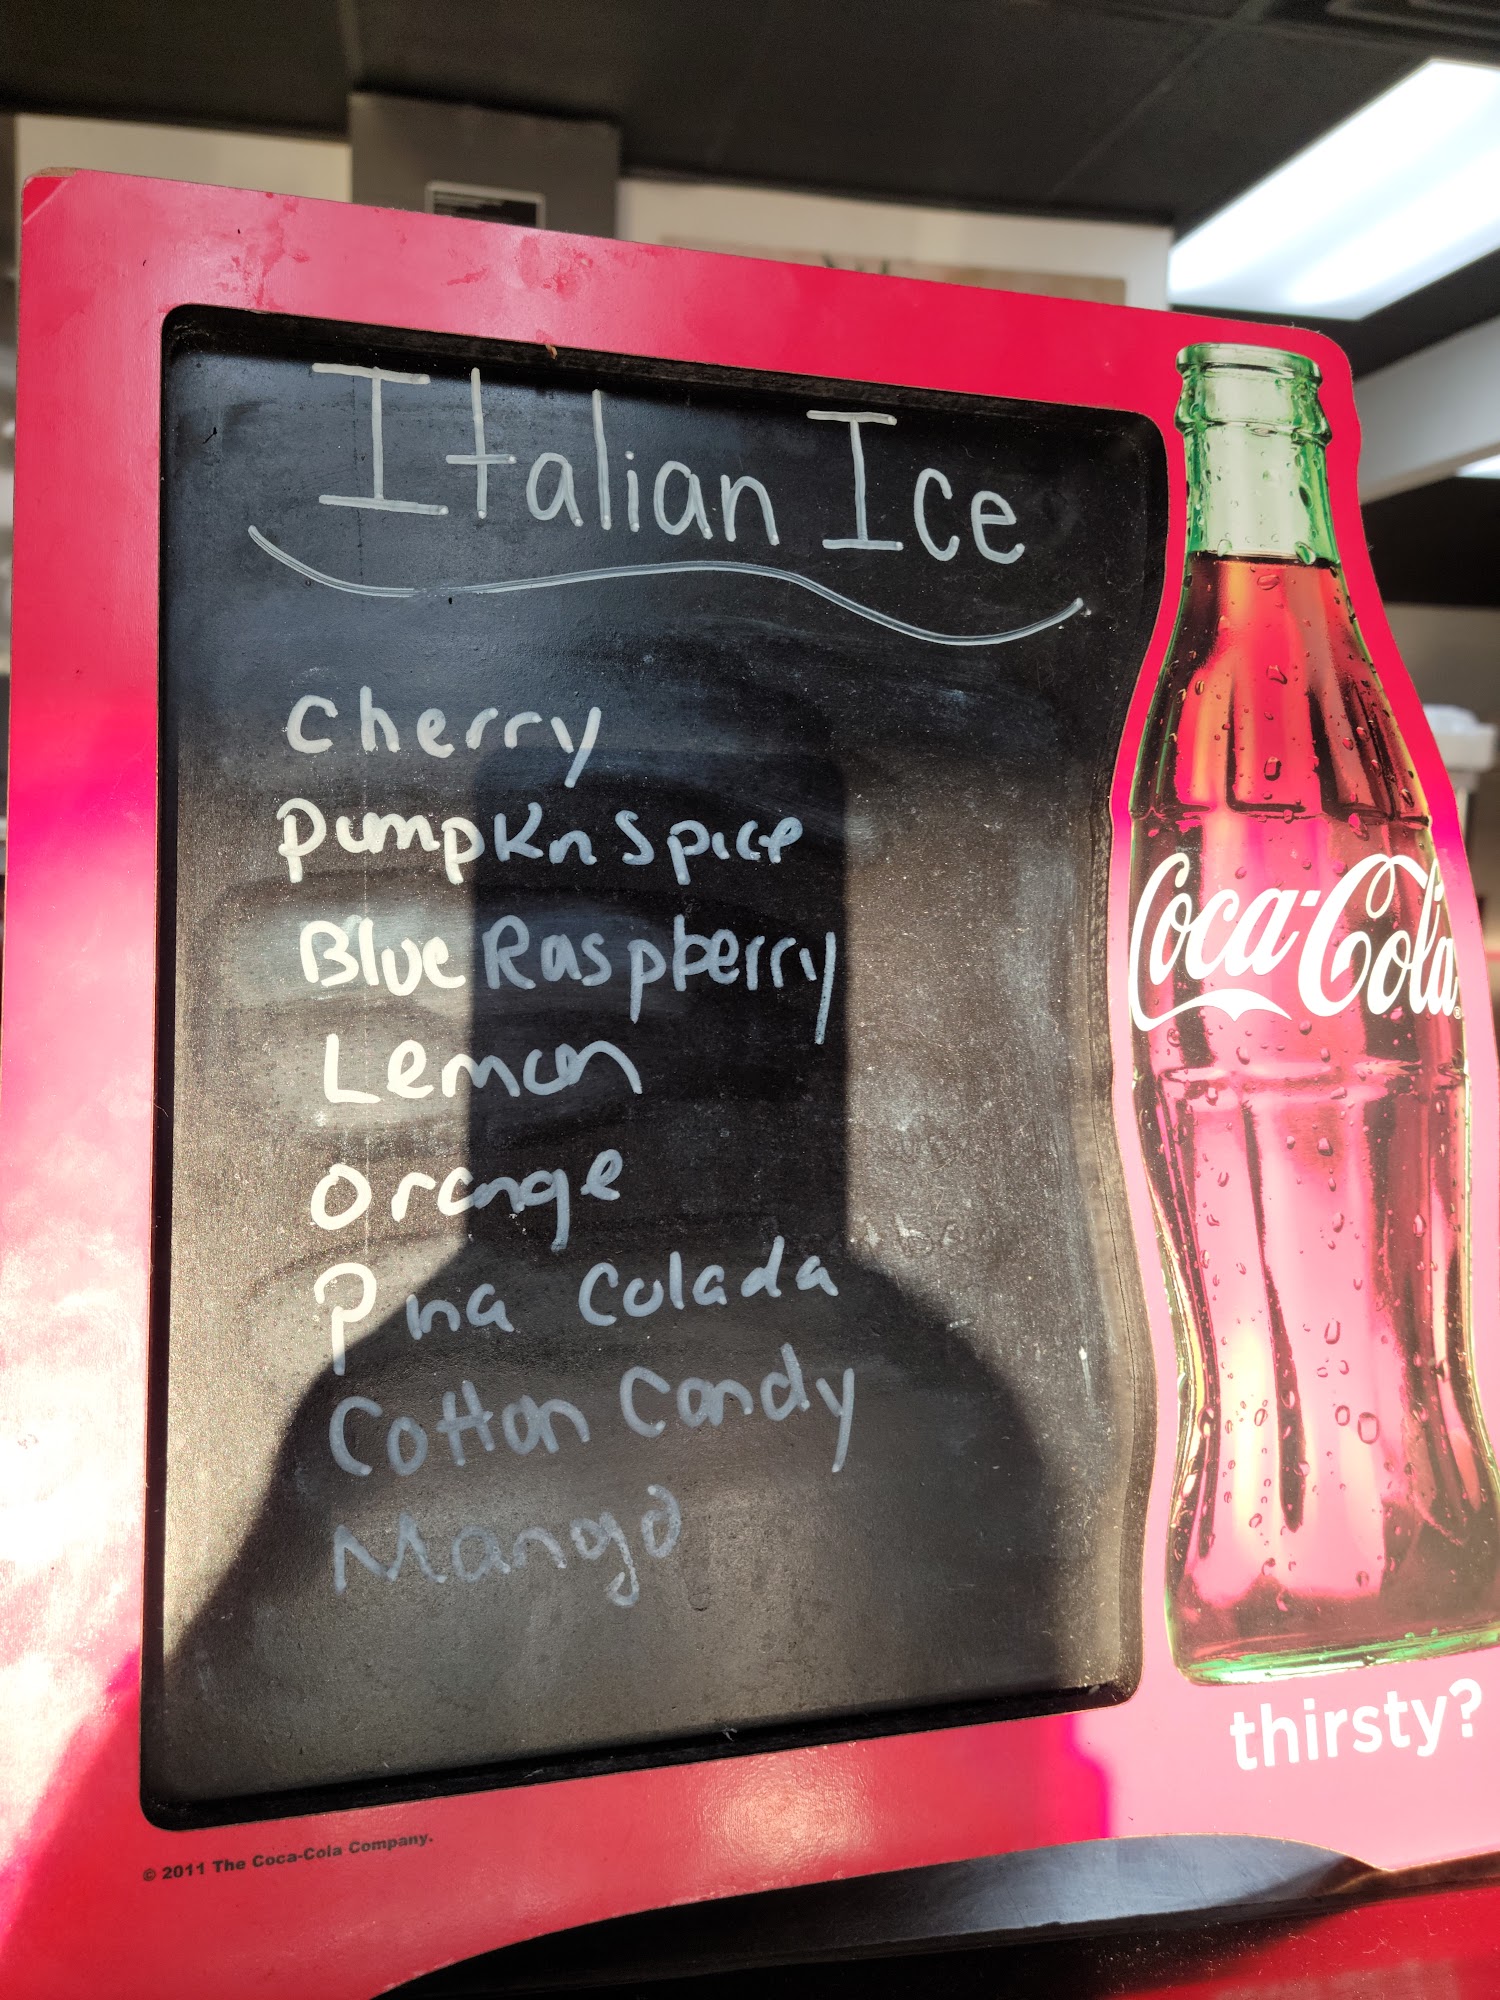 Italian Ice
cherry
Pumpkn Spice
Blue Raspberry
Lemon
orange
Pina Colada
Cotton Candy
Mango
Coca-Cola
thirsty?
© 2011 The Coca-Cola Company.